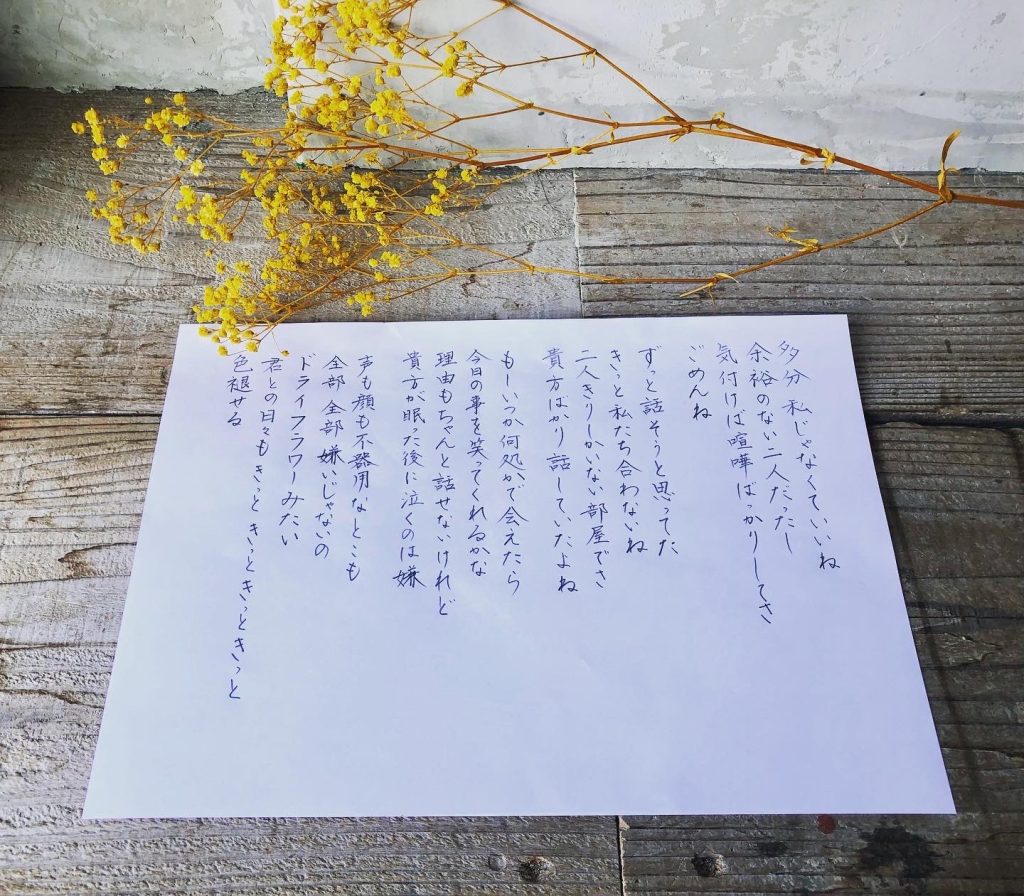 多分 私じゃなくていいね
余裕のない二人だったし
気付けば喧嘩ばっかりしてさ
ごめんね
ずっと話そうと思ってた
きっと私たち合わないね
二人きりしかいない部屋でさ
貴方ばかり話していたよね
もしいつか何処かで会えたら
今日の事を笑ってくれるかな
理由もちゃんと話せないけれど
貴方が眠った後に泣くのは嫌
声も顔も不器用なとこも
全部 全部 嫌いじゃないの
ドライフラワーみたい
君との日々もきっと きっと きっと きっと
色褪せる